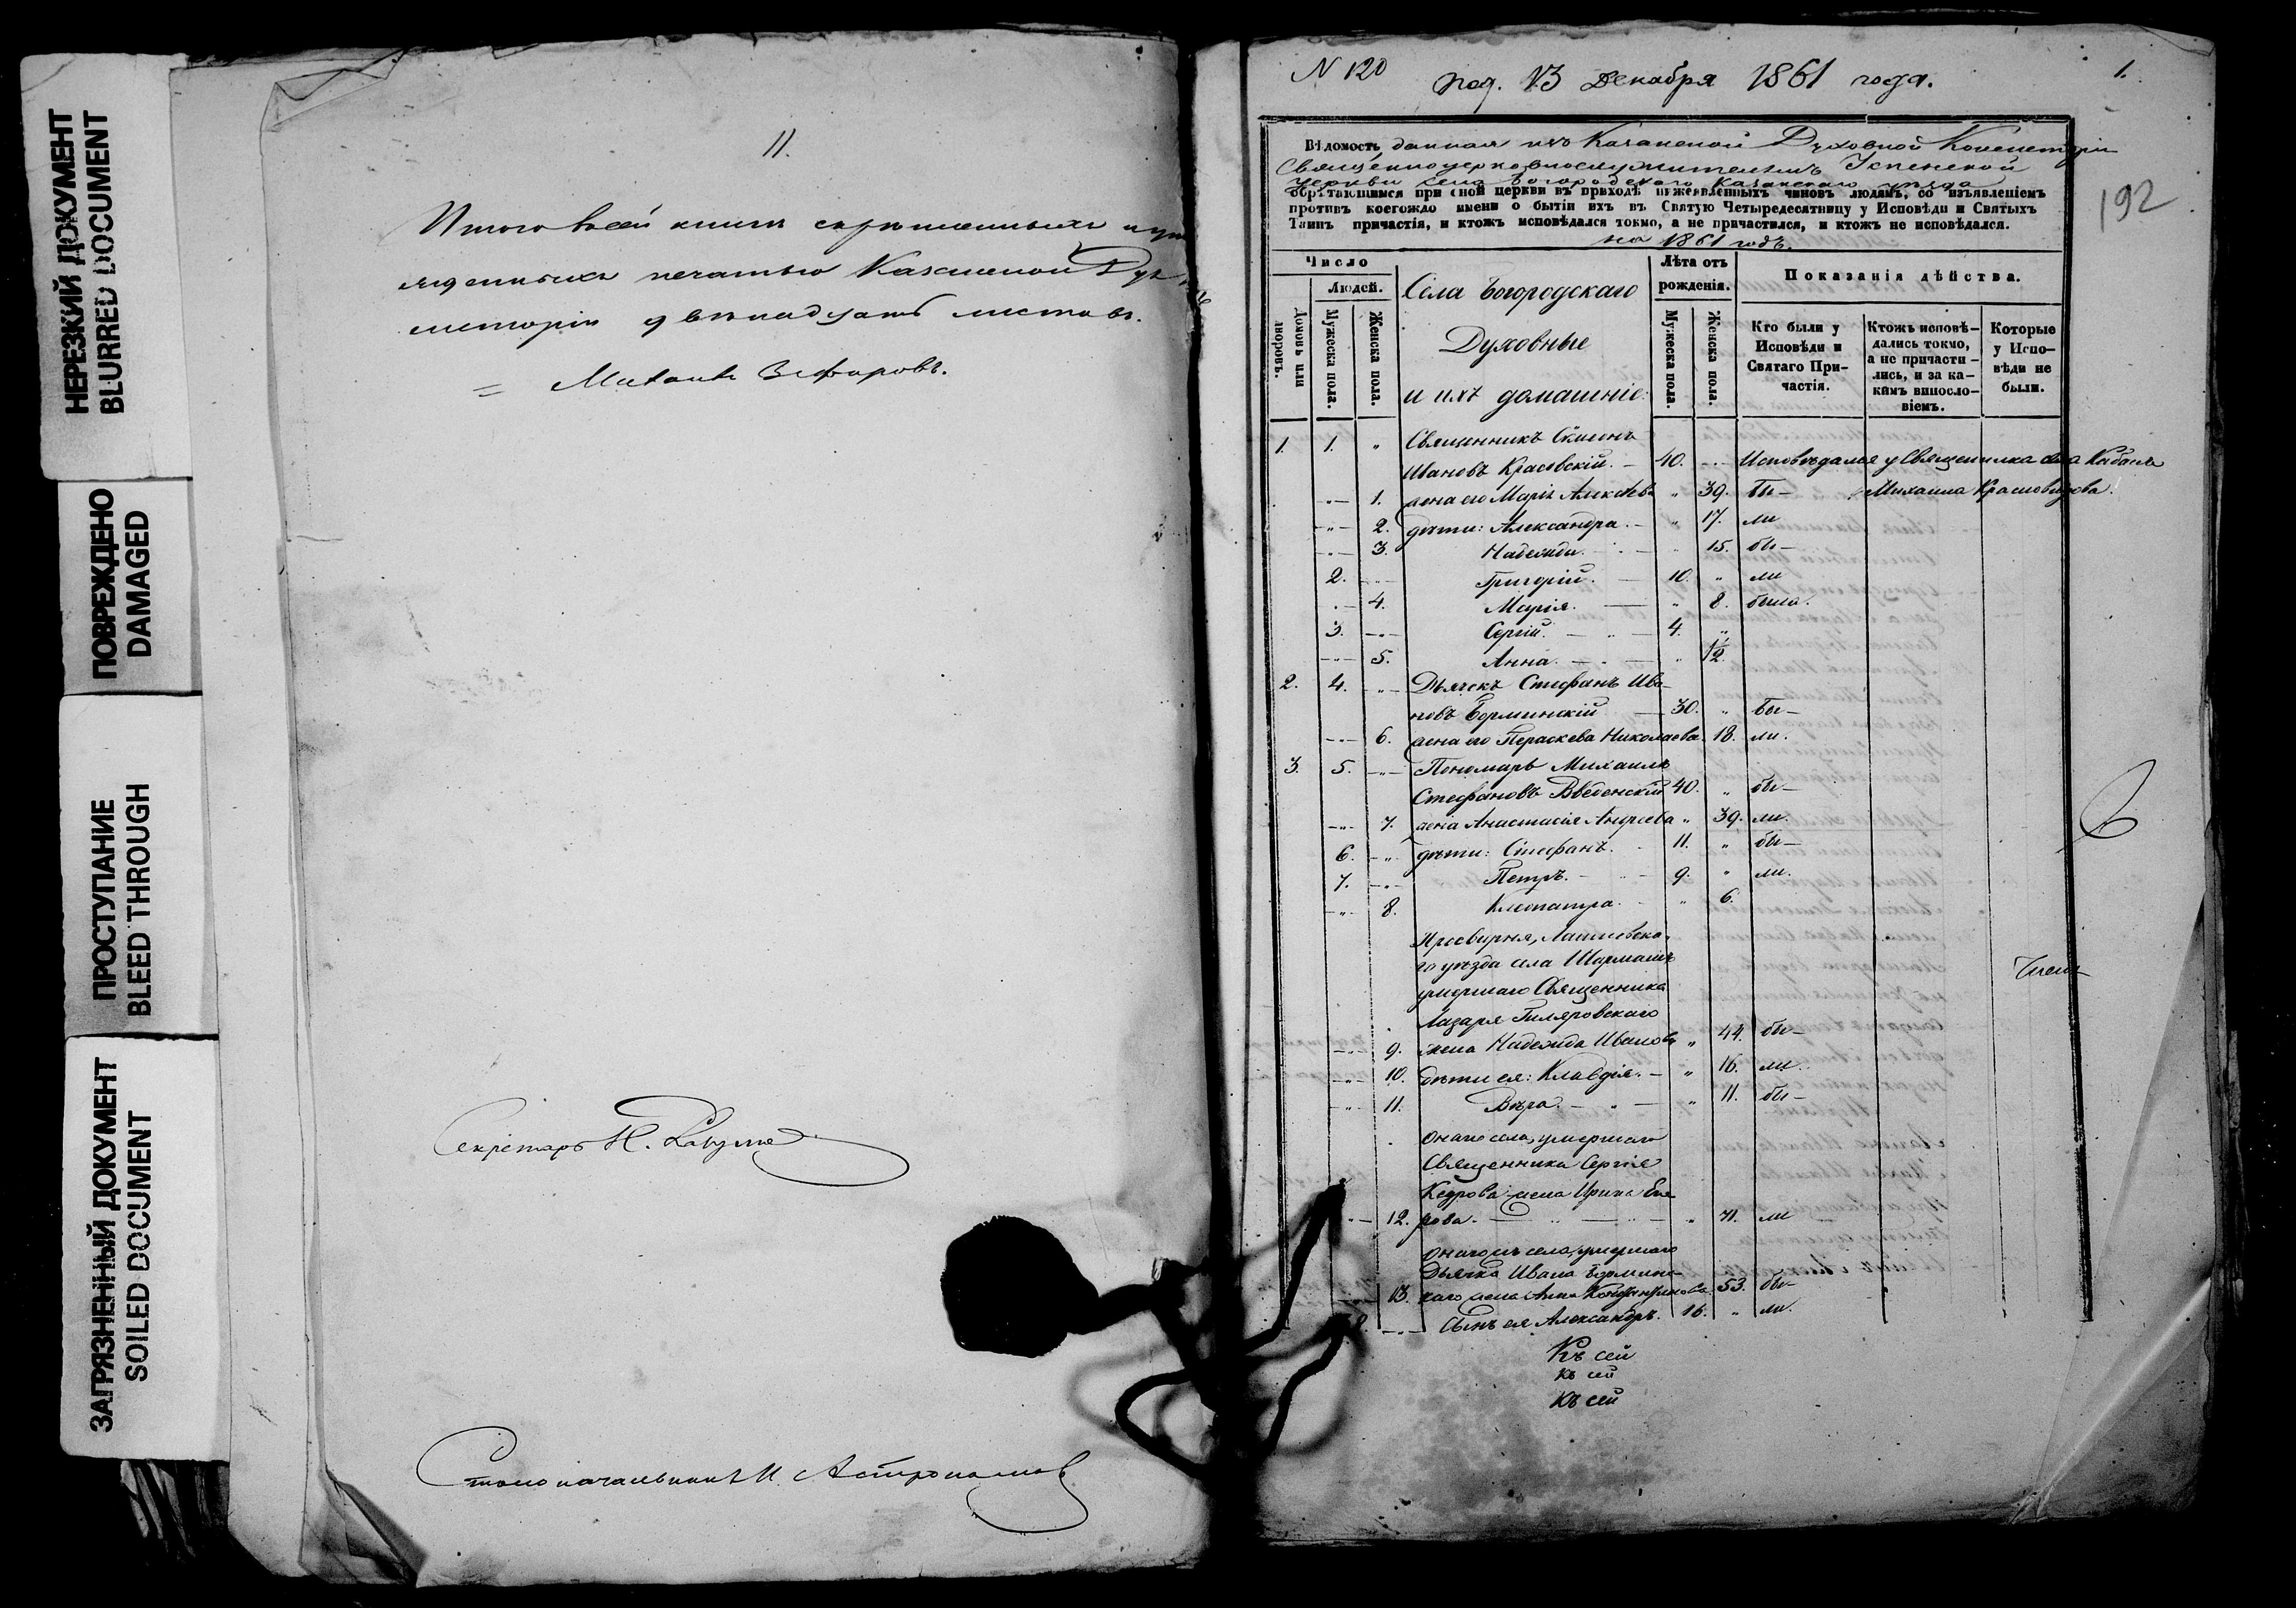 НЕРЕЗКИЙ ДОКУМЕНТ
BLURRED DOCUMENT
ПОВРЕЖДЕНО
DAMAGED
ПРОСТУПАНИЕ
BLEED THROUGH
ЗАГРЯЗНЕННЫЙ ДОКУМЕНТ
SOILED DOCUMENT
11.
Итого в сей книге скрепленныхъ и
печатью Казанской Дух.
двенадцать листовъ.
Михаилъ Зефировъ.
Секретарь Н.
Столоначальникъ И. Астрономов
N 120 под. 13 Декабря 1861 года. 1.
192
Вѣдомость данная изъ Казанской Духовной Консисторіи
Священноцерковнослужителямъ Успенской
церкви села Богородскаго Казанскаго уѣзда
обрѣтающимся при оной церкви въ приходѣ нижеявленныхъ чиновъ людямъ, со изъявленіемъ
противъ коегождо имени о бытіи ихъ въ Святую Четыредесятницу у Исповѣди и Святыхъ
Таинъ причастія, и ктожъ исповѣдался токмо, а не причастился, и ктожъ не исповѣдался.
на 1861 годъ.
Число
Людей.
Домовъ или дворовъ.
Мужеска пола.
Женска пола.
Села Богородскаго
Духовные
и ихъ домашніе:
Лѣта отъ рожденія.
Мужеска пола.
Женска пола.
Показанія дѣйства.
Кто были у Исповѣди и Святаго Причастія.
Ктожъ исповѣдались токмо, а не причастились, и за какимъ винословіемъ.
Которые у Исповѣди не были.
1. 1. " Священникъ Симеонъ
Ивановъ Красовскій. — 40. Исповѣдался у Священника села Кабанъ
1. жена его Марія Алексѣева " 39. бы— Михаила Красновидова.
2. дѣти: Александра. — " 17. ли
3. Надежда. — " 15. бы—
2. Григорій. — 10. " ли
4. Марія. — " 8. была.
3. Сергій. — 4. "
5. Анна. — " 1/2.
2. 4. Дьячекъ Стефанъ Ива—
новъ Борминскій — 30. " бы—
6. жена его Параскева Николаева. 18. ли.
3. 5. Пономарь Михаилъ
Стефановъ Введенскій 40. " бы—
7. жена Анастасія Андреева " 39. ли.
6. дѣти: Стефанъ. 11. " бы—
7. Петръ. — 9. " ли.
8. Клеопатра. " 6.
Просвирня, Лаишевска
го уѣзда села Шармашъ
умершаго Священника
Лазаря Гиляровскаго
9. жена Надежда Иванова " 44. бы—
10. дѣти ея: Клавдія. — " 16. ли.
11. Вѣра. — " 11. бы—
онаго села, умершаго
Священника Сергія
Кедрова жена Ирина Его
12. рова. — " 71. ли
онаго жъ села, умершаго
Дьячка Ивана Бормин
13. скаго жена Анна 53. бы—
8. Сынъ ея Александръ. 16. " ли.
Къ сей
къ сей
Къ сей